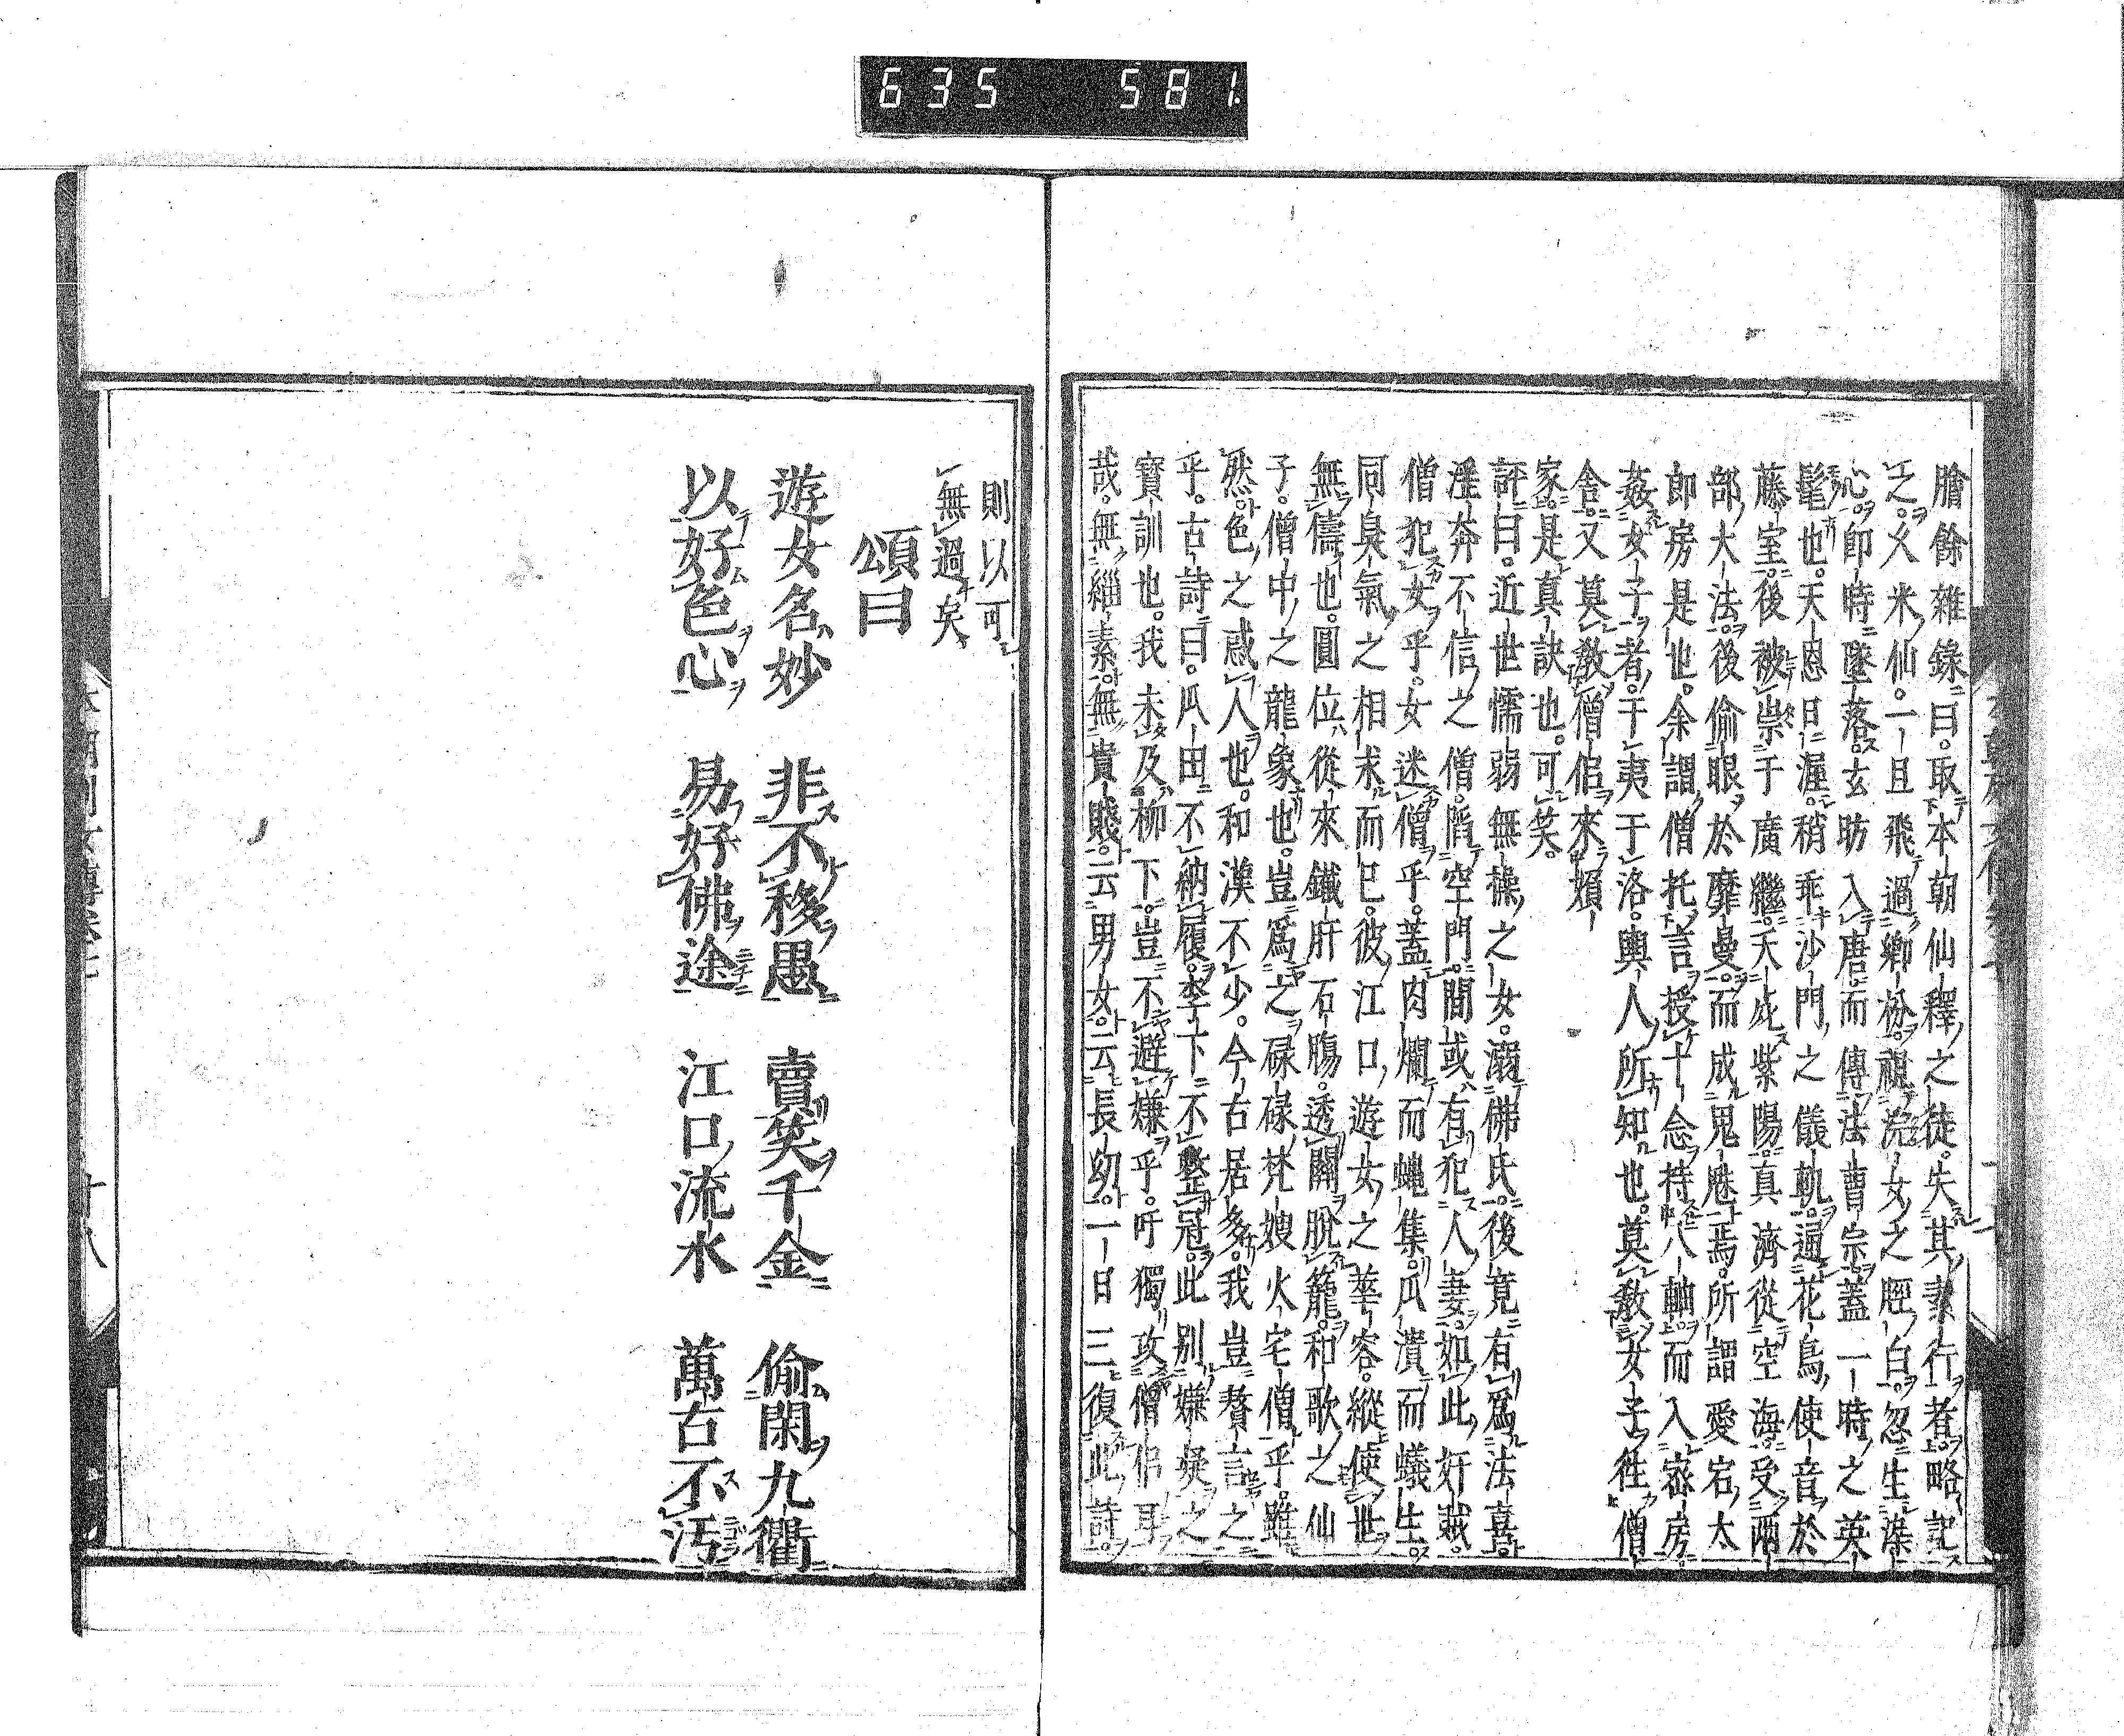 635 581
膾餘雜錄曰。取本朝仙釋之徒。失其素行者。略記
之。久米仙。一且飛過卿松。視浣女之脛白。忽生染
心。卽時墜落。玄昉入唐。而傳法曹宗。蓋一時之英
髦也。天恩日渥。稍乖沙門之儀軌。通花鳥使音於
藤室。後被祟于廣繼。天疵紫陽。真濟從空海。受兩
部大法。後偷眼於靡曼。而成鬼魅焉。所謂愛宕太
郎房是也。余謂僧托言授十念持八軸。而入密房。
姦女子者。于夷于洛。輿人所知也。莫敎女子徃僧
舍。又莫敎僧侶來煩
家。是真訣也。可笑。
評曰。近世懦弱無操之女。溺佛氏。後竟有爲法喜。
淫奔不信之僧。隋空門。間或有犯人妻。如此奸賊。
僧犯女乎。女迷僧乎。蓋肉爛而蠅集。瓜潰而蟻生。
同臭氣之相求而已。彼江口遊女之華容。縱使世
無儔也。圓位從來鐵肝石膓。透關脫籠。和歌之仙
子。僧中之龍象也。豈爲之碌碌梵嫂火宅僧乎。雖
然。色之惑人也。和漢不少。今古居多。我豈贅言之
乎。古詩曰。瓜田不納履。李下不整冠。此别嫌疑之
寶訓也。我未及柳下。豈不避嫌乎。吁獨攻僧侶耳
哉。無緇素。無貴賤。云男女。云長幼。一日三復此詩。
則以可
無過矣
頌曰
遊女名妙 非不移愚 賣笑千金 偷閑九衢
以好色心 易好佛途 江口流水 萬古不汚
十八